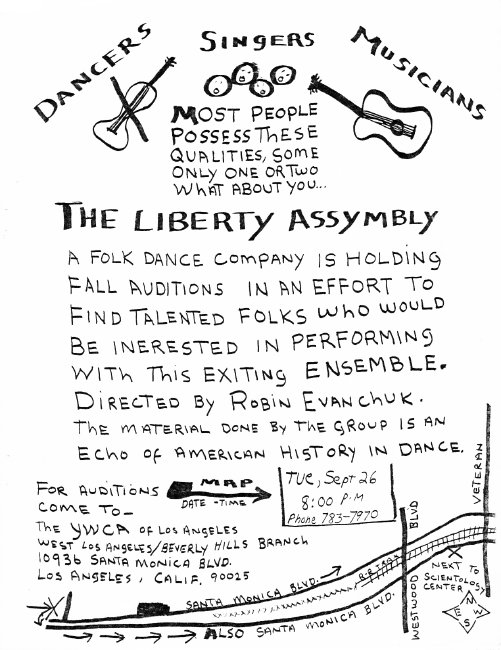 DANCERS
SINGERS
MUSICIANS
MOST PEOPLE
POSSESS THESE
QUALITIES, SOME
ONLY ONE OR TWO
WHAT ABOUT YOU...
THE LIBERTY ASSYMBLY
A FOLK DANCE COMPANY IS HOLDING
FALL AUDITIONS IN AN EFFORT TO
FIND TALENTED FOLKS WHO WOULD
BE INERESTED IN PERFORMING
WITH THIS EXITING ENSEMBLE.
DIRECTED BY ROBIN EVANCHUK.
THE MATERIAL DONE BY THE GROUP IS AN
ECHO OF AMERICAN HISTORY IN DANCE.
FOR AUDITIONS
COME TO-
THE YWCA OF LOS ANGELES
WEST LOS ANGELES/BEVERLY HILLS BRANCH
10936 SANTA MONICA BLVD.
LOS ANGELES, CALIF. 90025
MAP
DATE-TIME
TUE, Sept 26
8:00 P.M
Phone 783-7970
SANTA MONICA BLVD.
R.R. TRACK
ALSO SANTA MONICA BLVD.
WESTWOOD BLVD
VETERAN
NEXT TO
SCIENTOLOGY
CENTER
N
W
E
S